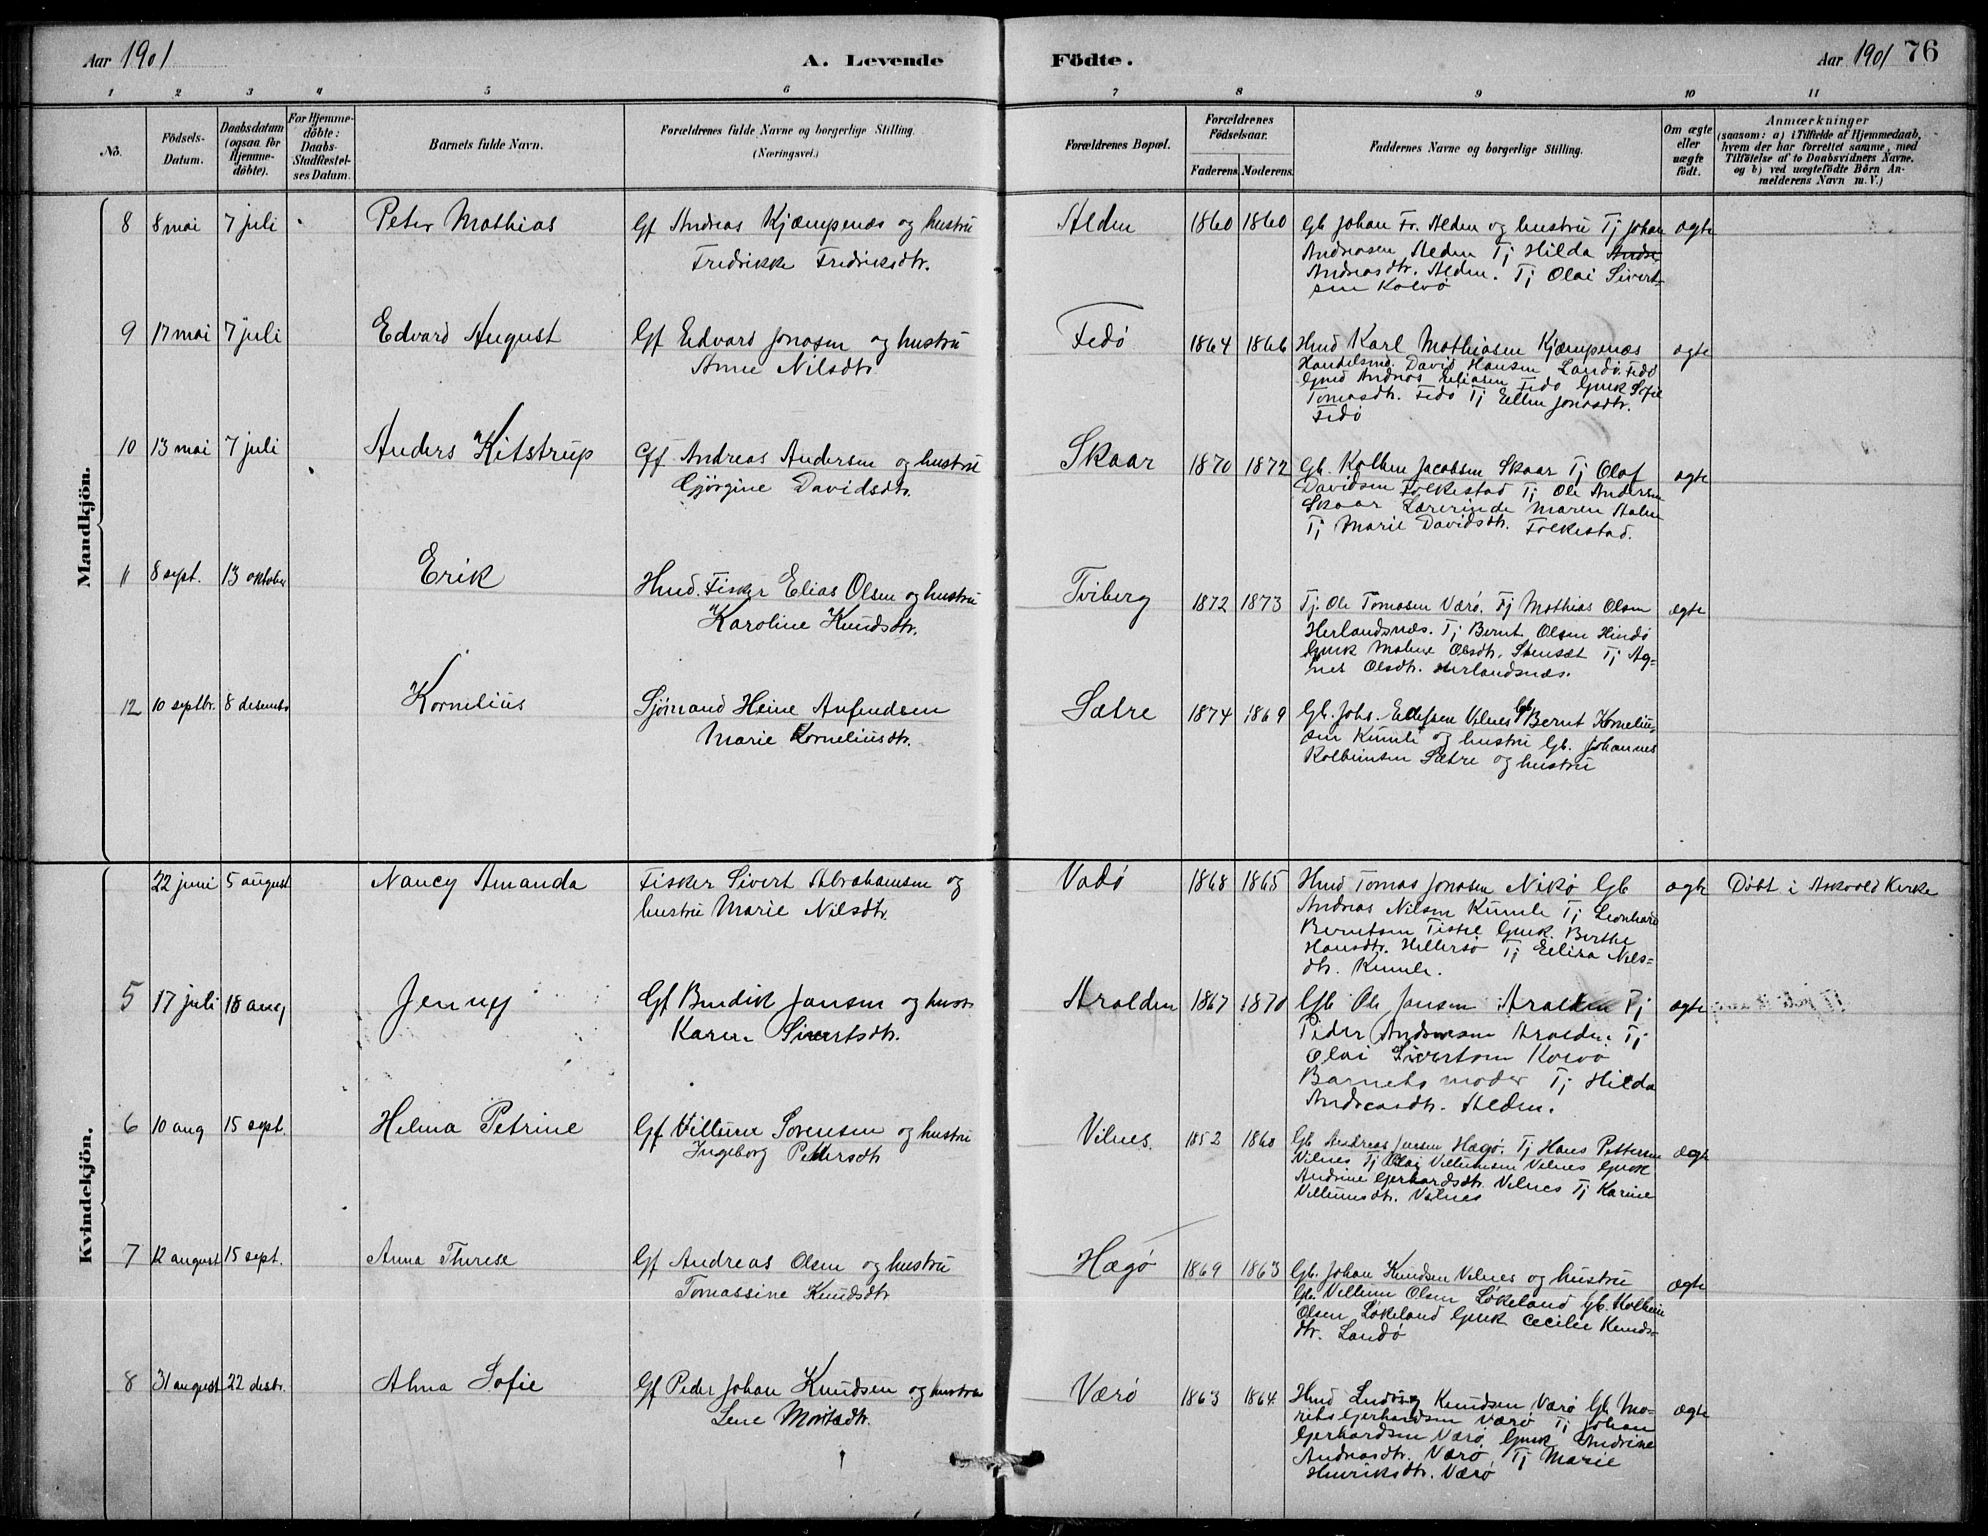 Aar 1901
A. Levende
Födte.
Aar 1901 76
1 2 3 4 5 6 7 8 9 10 11
No.
Födsels-
Datum.
Daabsdatum
(ogsaa for
Hjemme-
döbte).
For Hjemme-
döbte:
Daabs-
Stadfæstel-
ses Datum.
Barnets fulde Navn.
Forældrenes fulde Navne og borgerlige Stilling.
(Næringsvei.)
Forældrenes Bopæl.
Forældrenes
Födselsaar.
Faderens. Moderens.
Faddernes Navne og borgerlige Stilling.
Om ægte
eller
uægte
födt.
Anmærkninger
(saasom: a) i Tilfælde af Hjemmedaab,
hvem der har forrettet samme, med
Tilföielse af to Daabsvidners Navne.
og b) ved uægtefödte Börn An-
melderens Navn m. V.)
Mandkjön.
8 8 mai 7 juli Peter Mathias
Gf Andreas Kjæmpenæs og hustru
Fredrikke Fredriksdtr.
Alden 1860 1860
Gb Johan Fr. Alden og hustru Tj Johan
Andreasen Alden Tj Hilda Andre
Andreasdtr. Alden. Tj Olai Sivert-
sen Kolvø
ægte
9 17 mai 7 juli Edvard August
Gf Edvard Jonasen og hustru
Anne Nilsdtr
Fedø 1864 1866
Hmd Karl Mathiasen Kjæmpenæs
Handelsmd. David Hansen Landø. Fedø
Gmd Andreas Eliasen Fedø Gmk Sofie
Tomasdtr. Fedø Tj Ellen Jonasdtr.
Fedø
ægte
10 13 mai 7 juli Anders Kitstrup
Gf Andreas Andersen og hustru
Gjørgine Davidsdtr.
Skaar 1870 1872
Gb. Kolben Jacobsen Skaar Tj Olaf
Davidsen Folkestad Tj Ole Andersen
Skaar Lærerinde Maren Aalen
Tj Marie Davidsdtr. Folkestad.
ægte
11 8 sept. 13 oktober Erik
Hmd. Fisker Elias Olsen og hustru
Karoline Knudsdtr.
Tviberg 1872 1873
Tj. Ole Tomasen Værø. Tj Mathias Olsen
Herlandsnæs. Tj Bernt Olsen Hindø
Gmk Malene Olsdtr. Stensæt Tj Ag-
nes Olsdtr. Herlandsnæs.
ægte
12 10 septbr. 8 desember Kornelius
Sjømand Heine Anfendsen
Marie Korneliusdtr.
Sætre 1874 1869
Gb. Johs. Ellefsen Vilnes Gb. Bernt Kornelius-
sen Kumle og hustru Gb. Johannes
Kolbeinsen Sætre og hustru
Kvindekjön.
22 juni 5 august Nancy Amanda
Fisker Sivert Abrahamsen og
hustru Marie Nilsdtr.
Vadø 1868 1865
Hmd Tomas Jonasen Nikø Gb
Andreas Nilsen Kumle Tj Leonhard
Berntsen Tistel Gmk. Berthe
Hansdtr. Hillersø Tj Elisa Nils-
dtr. Kumle.
ægte Døbt i Askvold Kirke
5 17 juli 18 aug Jenny
Gf Bendik Jansen og hustr.
Karen Sivertsdtr.
Aralden 1867 1870
Gb Ole Jansen Aralden Tj
Peder Andersen Aralden. Tj
Olai Sivertsen Kolvø
Barnets moder Tj Hilda
Andreasdtr. Alden.
ægte
6 10 aug 15 sept. Helma Petrine
Gf Villum Sørensen og hustru
Ingeborg Pettersdtr
Vilnes 1852 1860
Gb Andreas Jensen Hægø. Tj Hans Pettersen
Vilnes Tj Olai Villumsen Vilnes Gmk
Andrine Gerhardsdtr. Vilnes Tj Karine
Villumsdtr. Vilnes
ægte
7 12 august 15 sept. Anna Therese
Gf Andreas Olsen og hustru
Tomassine Knudsdtr
Hægø 1869 1863
Gb. Johan Knudsen Vilnes og hustru
Gb. Villum Olsen Løkeland Gb. Kolbein
Olsen Løkeland Gmk Cecilie Knuds-
dtr. Landø
ægte
8 31 august 22 desbr. Alma Sofie
Gf Peder Johan Knudsen og hustru
Lene Moritsdtr.
Værø 1863 1864
Hmd Ludvig Knudsen Værø Gb Mo-
rits Gerhardsen Værø Tj Johan
Gerhardsen Værø Gmk Andrine
Andreasdtr. Værø Tj Marie
Henriksdtr. Værø
ægte